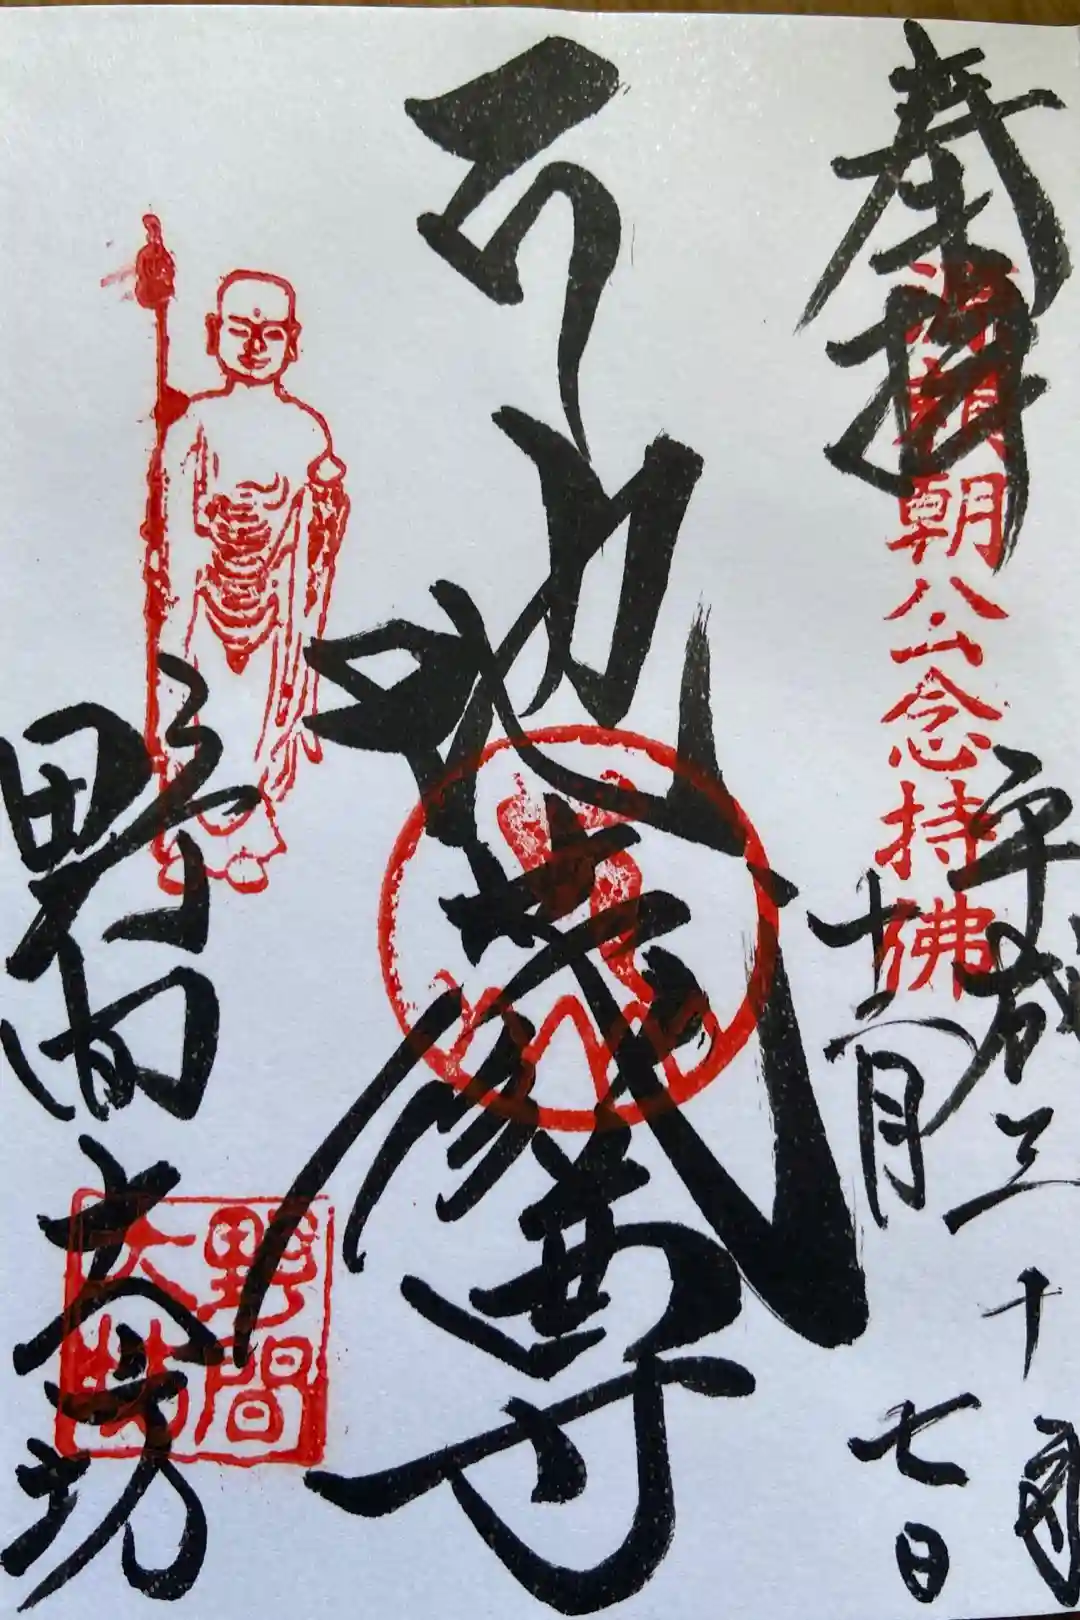 奉拝
源頼朝公念持佛
平成三十年
月七日
地蔵尊
野間大坊
野間
大坊